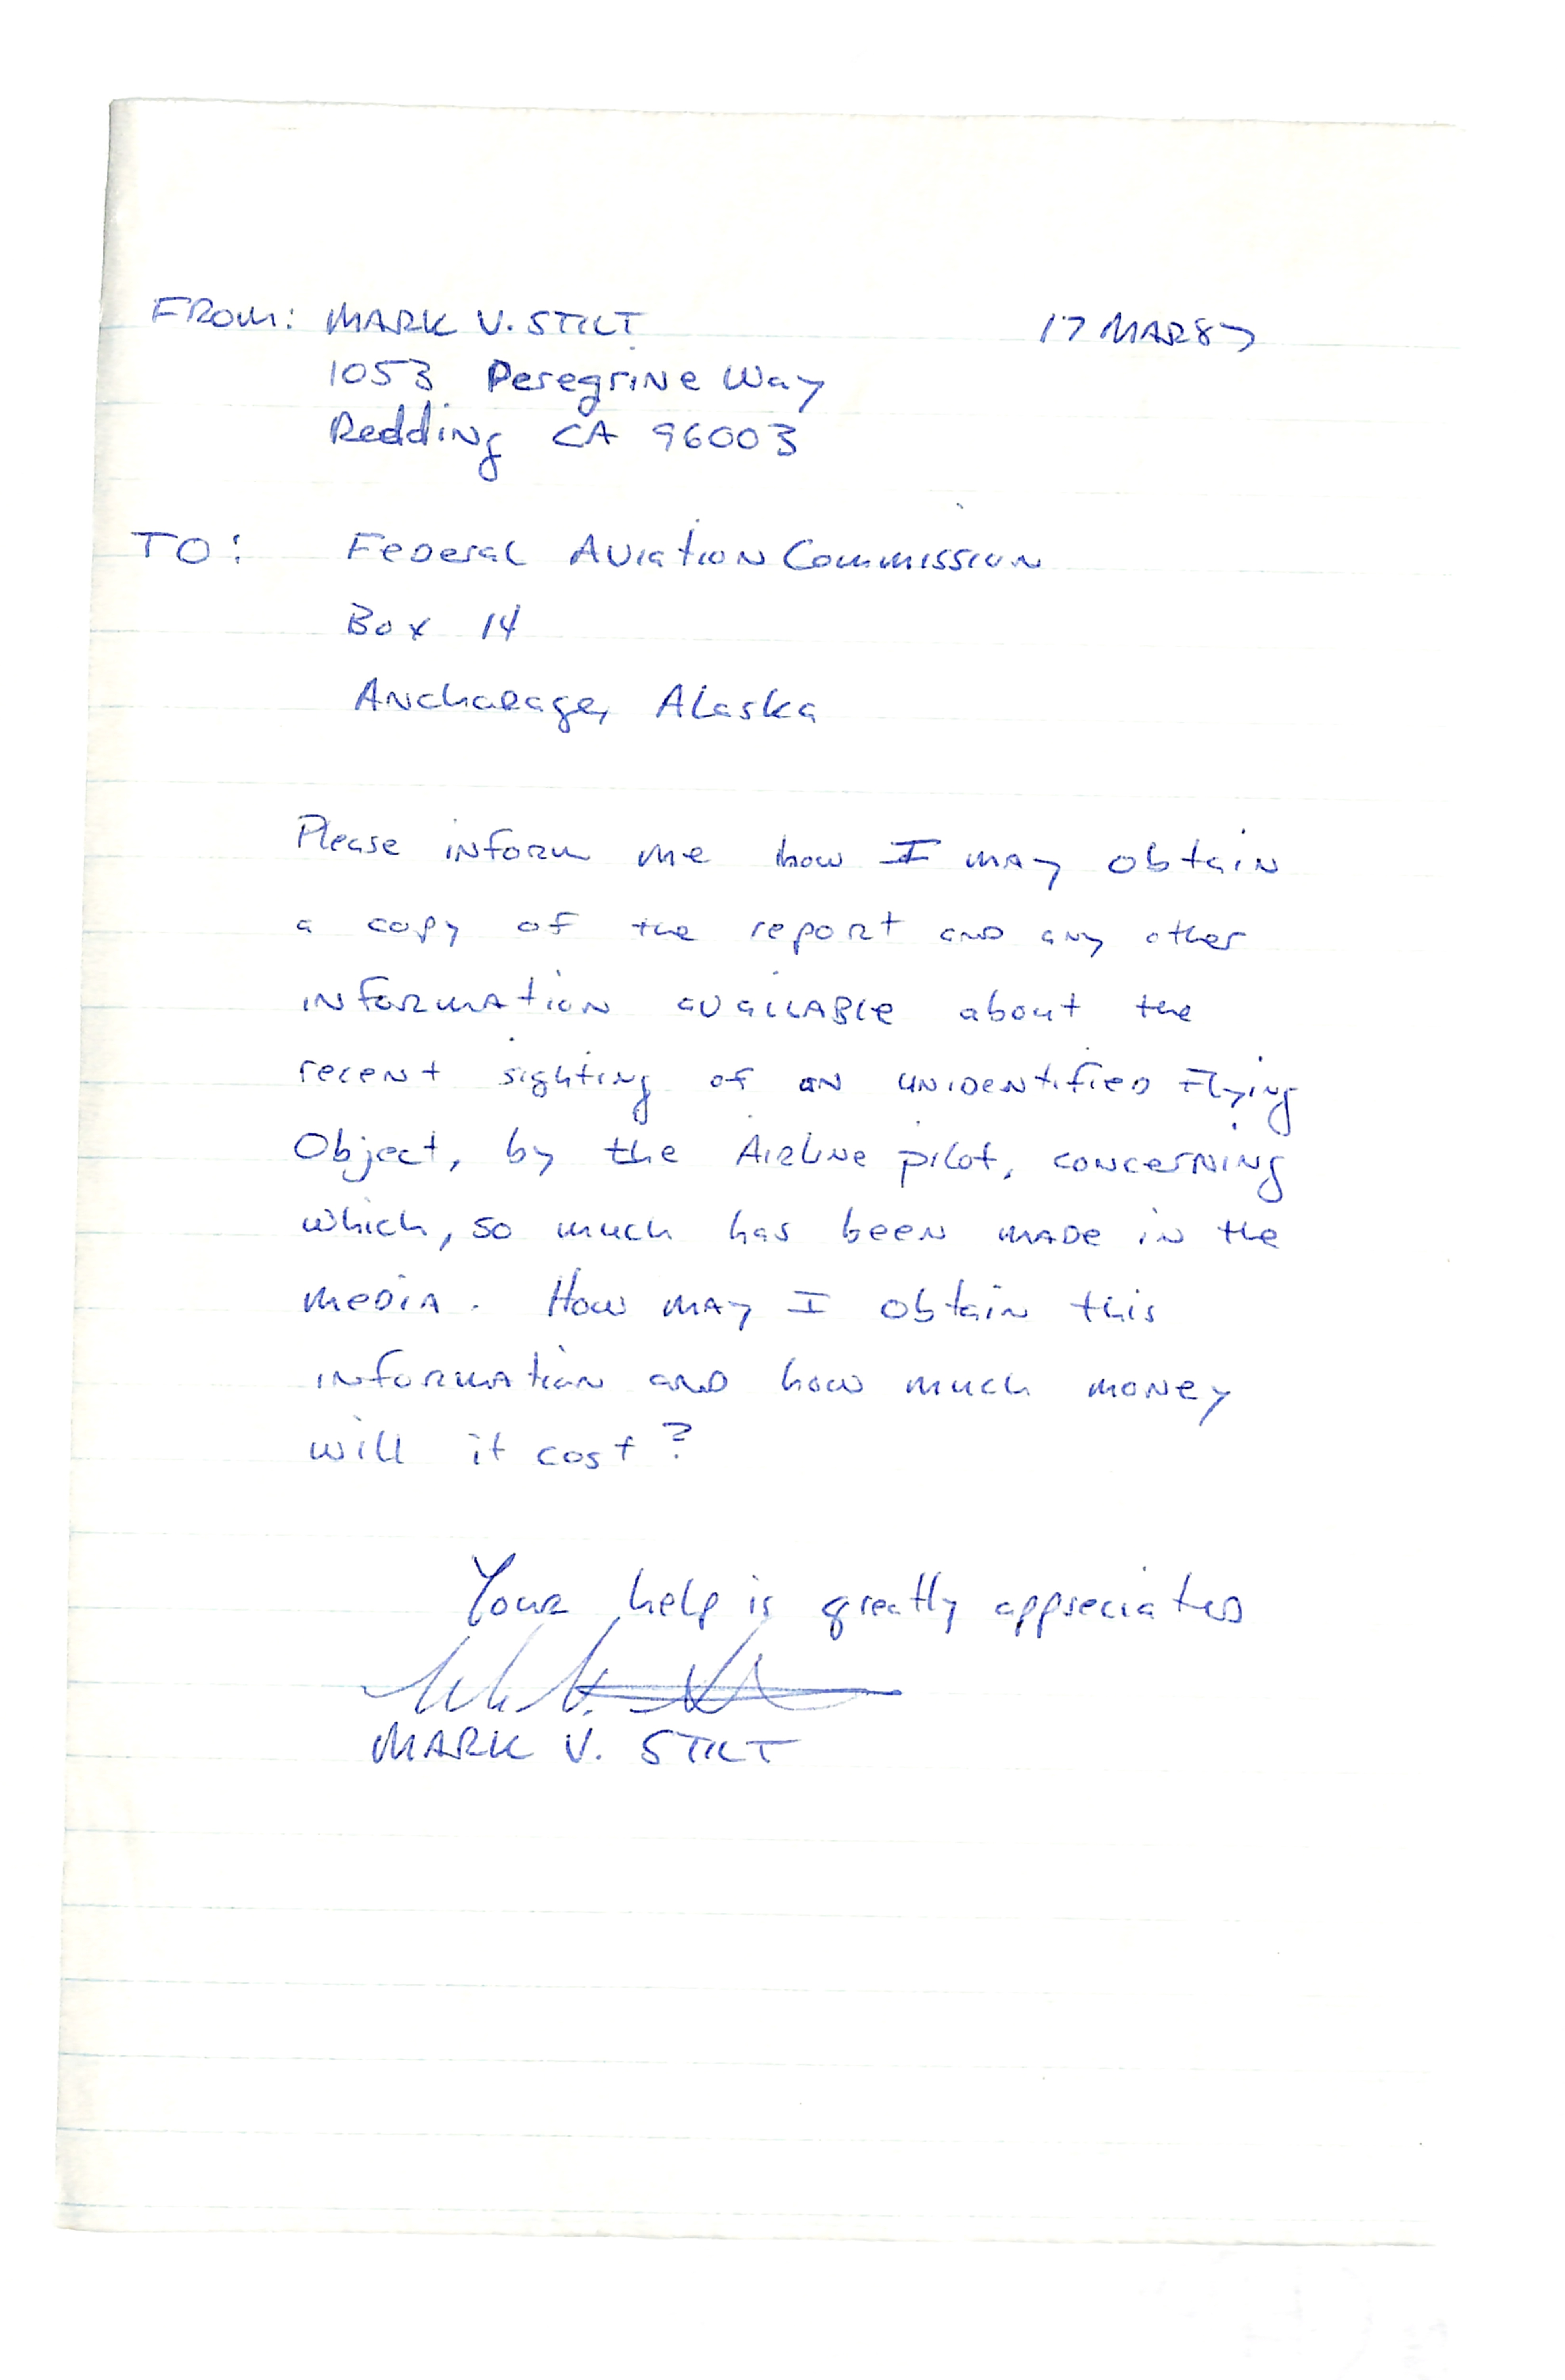 FROM: MARK V. STILT 17 MAR 87
1053 Peregrine Way
Redding CA 96003
TO: Federal Aviation Commission
Box 14
Anchorage, Alaska
Please inform me how I may obtain
a copy of the report and any other
information available about the
recent sighting of an unidentified Flying
Object, by the Airline pilot, concerning
which, so much has been made in the
media. How may I obtain this
information and how much money
will it cost?
Your help is greatly appreciated
MARK V. STILT